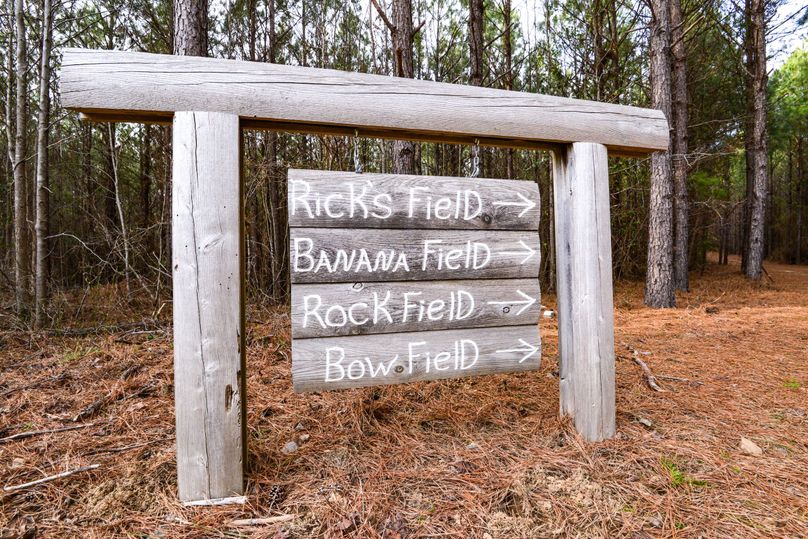 Rick's Field →
Banana Field →
Rock Field →
Bow Field →